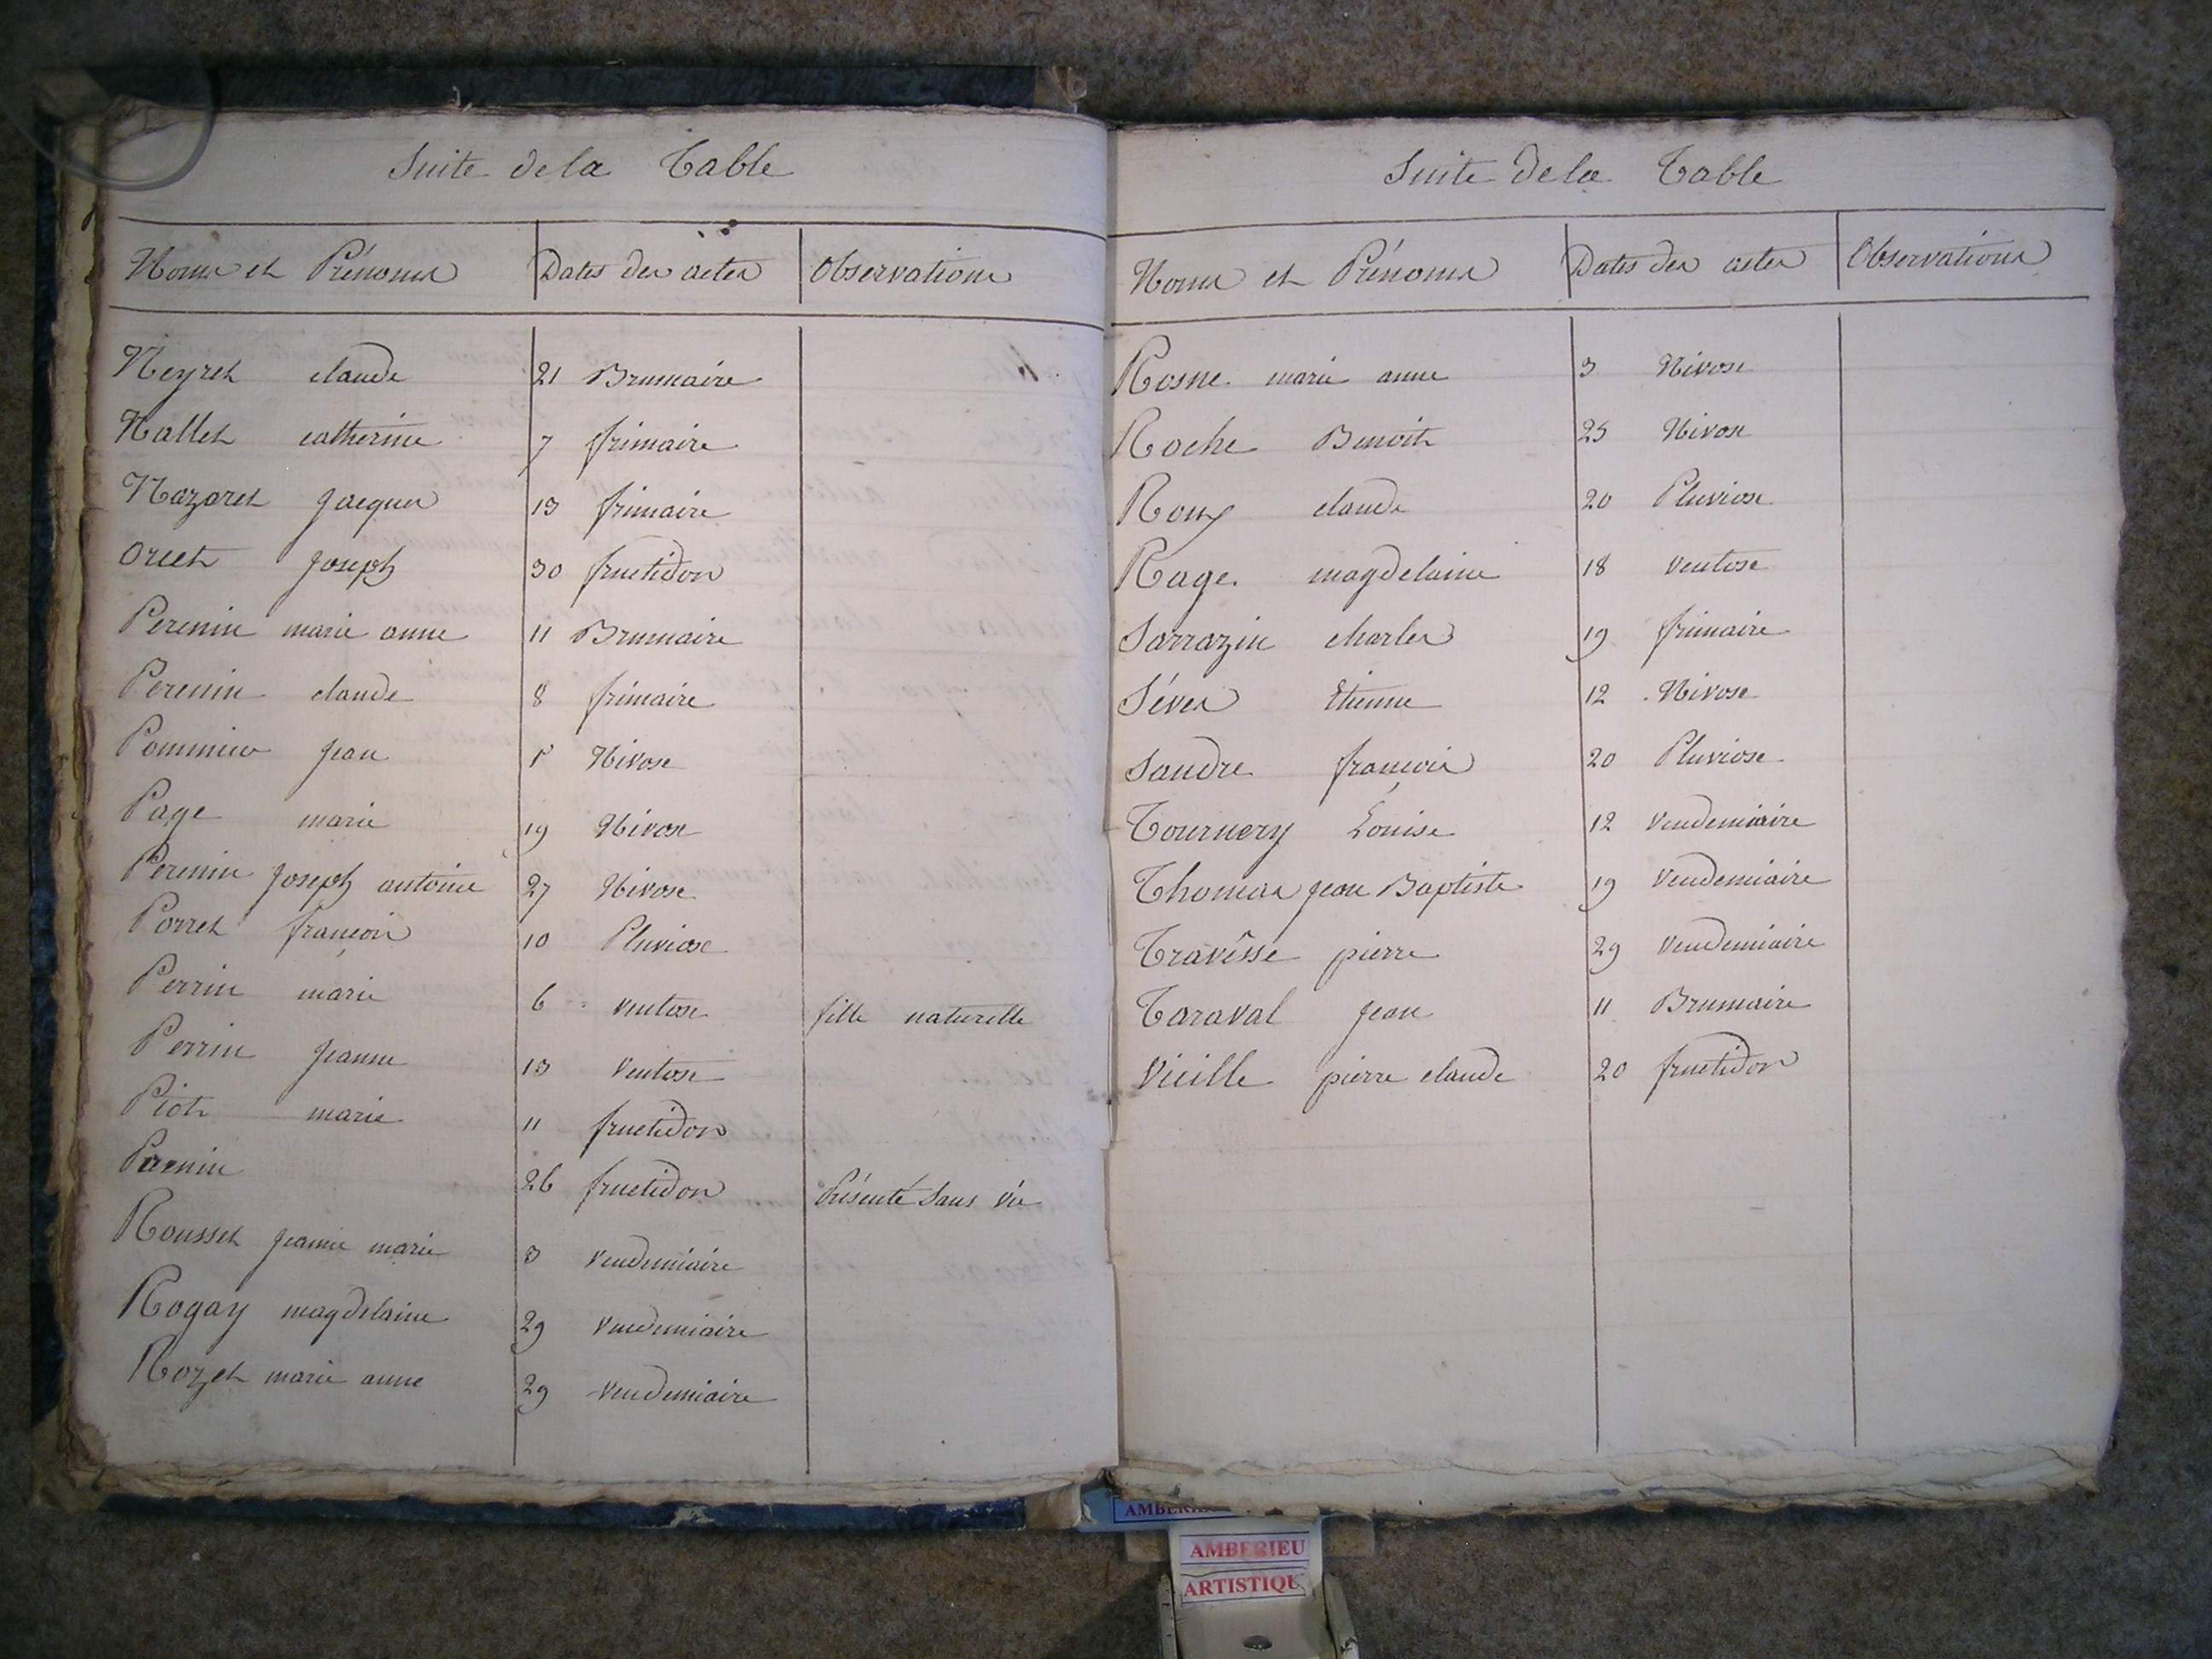 Suite de la Table
Noms et Prénoms Dates des actes Observations
Neyret claude 21 Brumaire
Nallet catherine 7 frimaire
Nazaret jacques 13 frimaire
Orcet joseph 30 fructidor
Perenin marie anne 11 Brumaire
Perenin claude 8 frimaire
Pommier jean Nivose
Page marie 19 Nivose
Perenin joseph antoine 27 Nivose
Porret françois 10 Pluviose
Perrin marie 6 ventose fille naturelle
Perrin jeanne 13 Ventose
Piot marie 11 fructidor
Parnin 26 fructidor Présenté Sans vie
Rousset jeanne marie 3 vendemiaire
Rogay magdelaine 29 vendemiaire
Rozet marie anne 29 vendemiaire
Suite de la Table
Noms et Prénoms Dates des actes Observations
Rosne marie anne 3 Nivose
Roche Benoit 25 Nivose
Roux claude 20 Pluviose
Rage magdelaine 18 ventose
Sarrazin charles 19 frimaire
Séves Etienne 12 Nivose
Sandre françois 20 Pluviose
Tournery Louise 12 vendemiaire
Thomas jean Baptiste 19 vendemiaire
Travêsse pierre 29 vendemiaire
Taraval jean 11 Brumaire
Vieille pierre claude 20 fructidor
AMBERIEU
ARTISTIQU